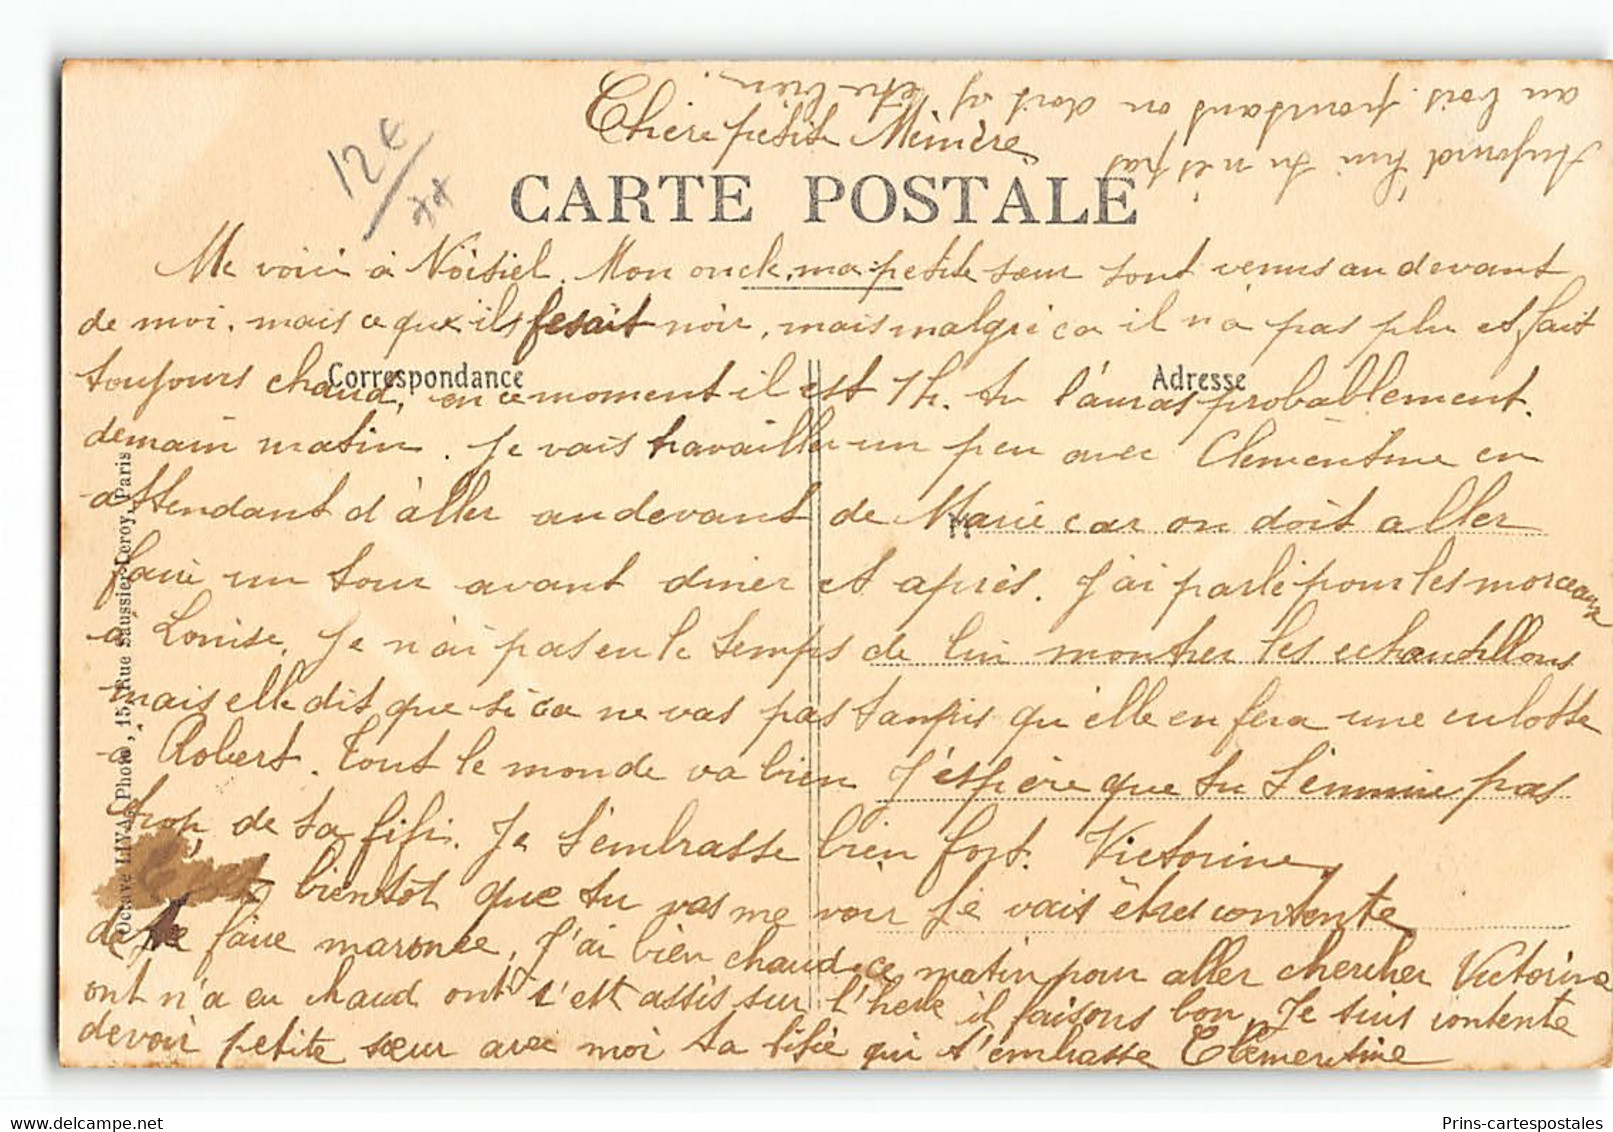 Chère petite Mémère
CARTE POSTALE
12€
**
Me voici à Noisiel. Mon oncle, ma petite sœur sont venus au devant
de moi, mais ce que ils fesait noir, mais malgré ca il n'a pas plu et fait
toujours chaud, en ce moment il est 1h. tu l'auras probablement
Correspondance
Adresse
demain matin. Je vais travailler un peu avec Clémentine en
attendant d'aller au devant de Marie car on doit aller
faire un tour avant diner et après. J'ai parlé pour les morceaux
à Louise, Je n'ai pas eu le temps de lui montrer les echantillons
mais elle dit que si ca ne vas pas tanpis qu'elle en fera une culotte
à Robert. Tout le monde va bien J'espère que tu t'ennuie pas
trop, de ta fifi. Je t'embrasse bien fort. Victorine,
bientôt que tu vas me voir je vais être contente
de te faire maronee, J'ai bien chaud ce matin pour aller chercher Victorine
ont n'a eu chaud ont s'est assis sur l'herbe il faisons bon, Je suis contente
devoir petite sœur avec moi ta fifie qui t'embrasse Clémentine
Aujourd'hui tu n'es pas
au bois. pourtant on doit y
être bien
Octave LIVA, Photo, 15, Rue Saussier-Leroy, Paris
delcampe.net
Prins-cartespostales